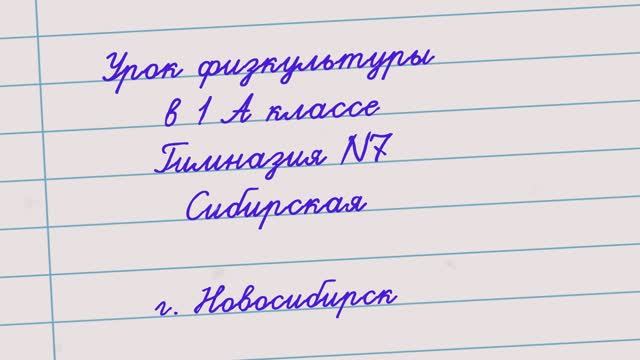 Урок физкультуры
в 1 А классе
Гимназия №7
Сибирская
г. Новосибирск